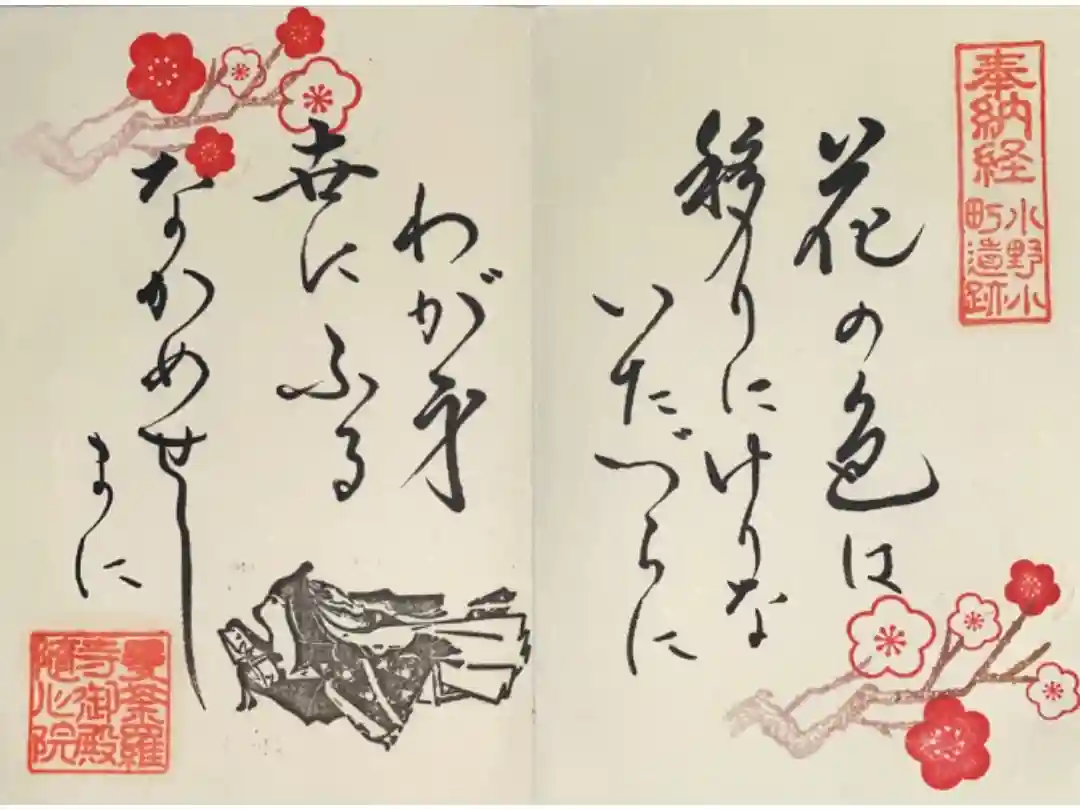 奉納経
小野小
町遺跡
花の色は
移りにけりな
いたづらに
わが身
世にふる
なかめせし
まに
曼荼羅
寺御殿
随心院